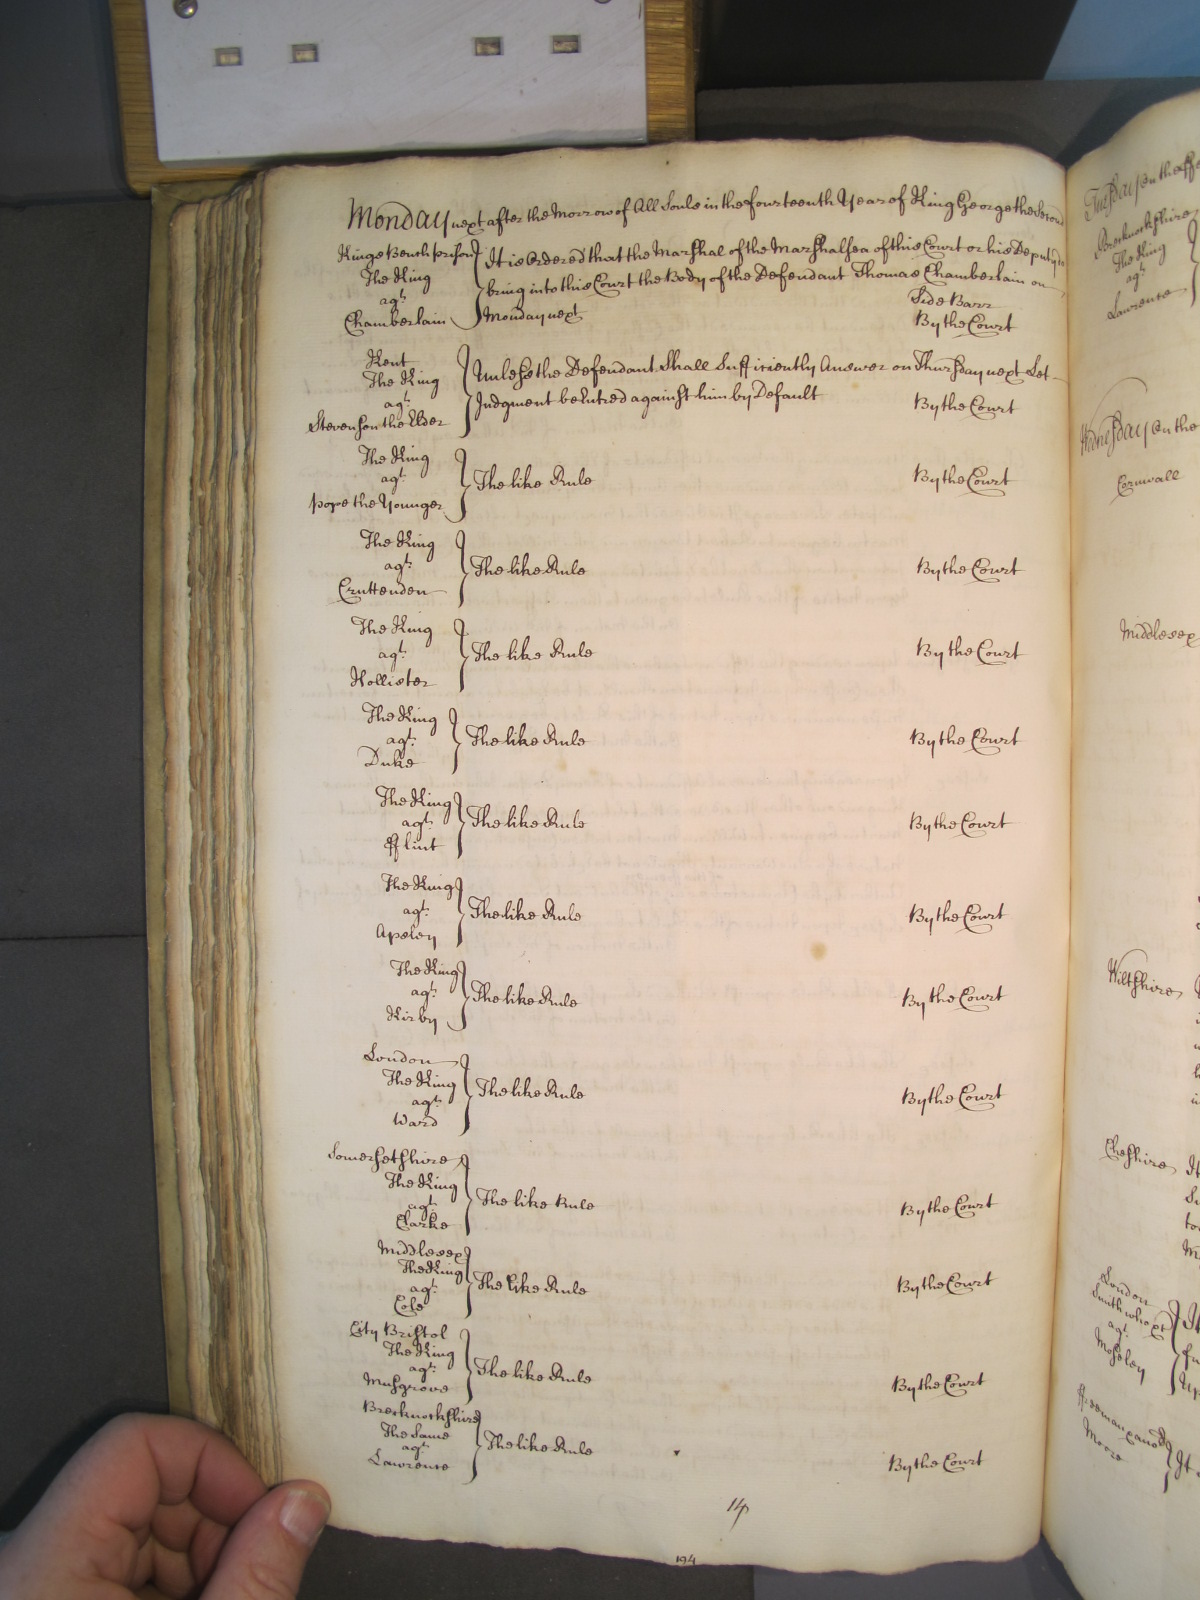 Monday next after the Morrow of All Souls in the fourteenth Year of King George the Second
Kings Bench prison
The King
agt.
Chamberlain
It is Ordered that the Marshal of the Marshalsea of this Court or his Deputy do
bring into this Court the Body of the Defendant Thomas Chamberlain on
Monday next
Side Barr
By the Court
Kent
The King
agt.
Stevenson the Elder
Unless the Defendant Shall Sufficiently Answer on Thursday next Let
Judgment be Entred against him by Default
By the Court
The King
agt.
Pope the Younger
The like Rule
By the Court
The King
agt.
Cruttenden
The like Rule
By the Court
The King
agt.
Hollister
The like Rule
By the Court
The King
agt.
Duke
The like Rule
By the Court
The King
agt.
fflint
The like Rule
By the Court
The King
agt.
Apsley
The like Rule
By the Court
The King
agt.
Kirby
The like Rule
By the Court
London
The King
agt.
Ward
The like Rule
By the Court
Somersetshire
The King
agt.
Clarke
The like Rule
By the Court
Middlesex
The King
agt.
Cole
The like Rule
By the Court
City Bristol
The King
agt.
Musgrove
The like Rule
By the Court
Brecknockshire
The Same
agt.
Lawrence
The like Rule
By the Court
14
194
Tuesday on the
Brecknockshire
The King
agt.
Lawrence
Wednesday on the
Cornwall
Middlesex
Wiltshire
Cheshire
London
agt.
Moseley
Moore